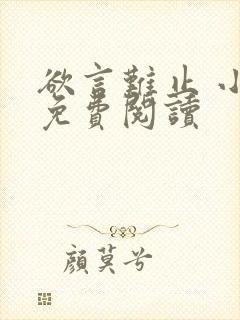 欲言難止 小
免費閱讀
顏莫兮